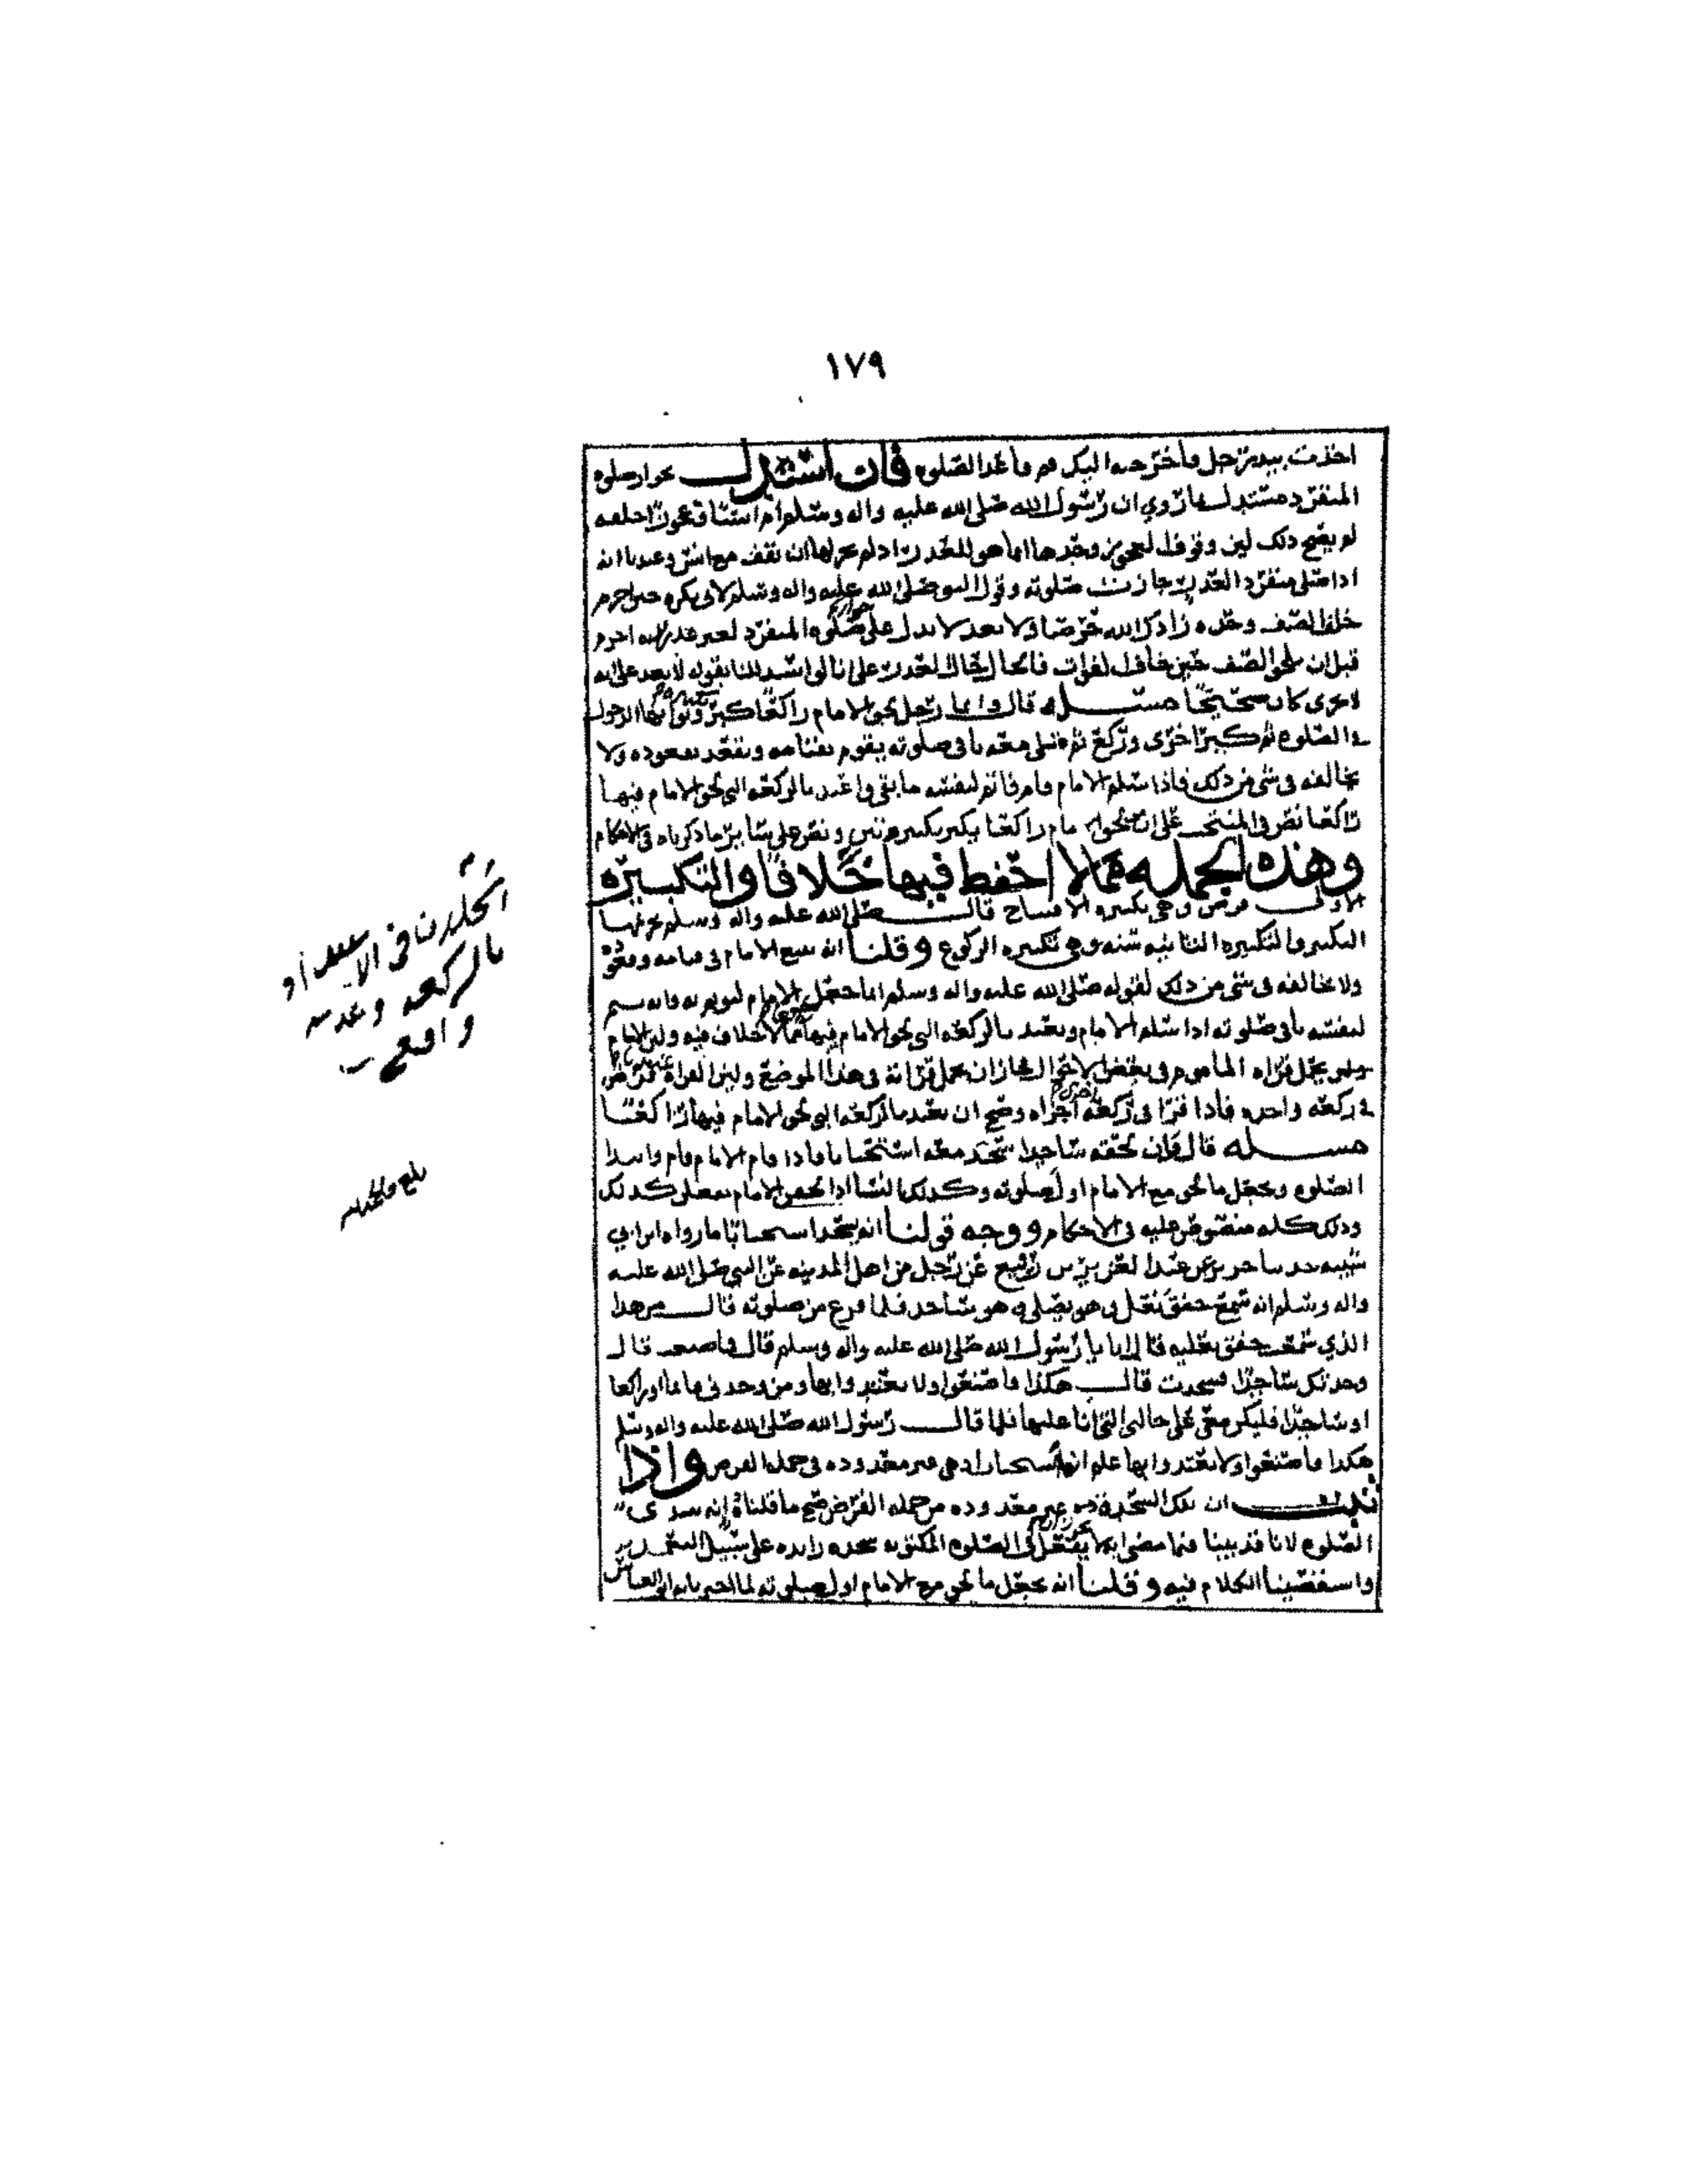 ١٧٩
اخذت بيد رجل فاخرجته اليك قم فاعد الصلوه فان استدل بجواز صلوه
المنفرد مستدل بما روي ان رسول الله صلى الله عليه واله وسلم ام انسا وعجوزا خلفه
لم يصح ذلك لان وقوف العجوز وحدها انما هو للعذر اذ لم يجز لها ان تقف مع انس وعندنا انه
اذا صلى منفردا لعذر جازت صلوته وقول النبي صلى الله عليه واله وسلم لابي بكره حين احرم
خلف الصف وحده زادك الله حرصا ولا تعد لا يدل على صلوه المنفرد لغير عذر لانه احرم
قبل ان يلحق الصف حين خاف الفوات
لاخرى كان صحيحا مسئله قال وايما رجل لحق الامام راكعا كبر ونوى بها الدخول
في الصلوه ثم كبر اخرى وركع ثم صلى معه باقي صلوته يقوم بقيامه ويقعد بقعوده ولا
يخالفه في شي من ذلك فاذا سلم الامام قام فاتم لنفسه ما بقي واعتد بالركعه التي لحق الامام فيها
راكعا نص في المنتخب على ان من لحق الامام راكعا يكبر تكبيرتين ونص على سائر ما ذكرناه في الاحكام
وهذه الجمله مما لا احفظ فيها خلافا والتكبيره
الاولى فرض وهي تكبيره الافتتاح قال صلى الله عليه واله وسلم تحريمها
التكبير والتكبيره الثانيه سنه وهي تكبيره الركوع وقلنا انه يتبع الامام في قيامه وقعوده
ولا يخالفه في شي من ذلك لقوله صلى الله عليه واله وسلم انما جعل الامام ليؤتم به فانه يتم
لنفسه باقي صلوته اذا سلم الامام ويعتد بالركعه التي لحق الامام فيها مما لا خلاف فيه ولان الامام
يحمل قراه الماموم في بعض الاحوال فجاز ان يحمل قراته في هذا الموضع ولان القراه فرض
في ركعه واحده فاذا قرا في ركعه اخرى اجزاه وصح ان يعتد بالركعه التي لحق الامام فيها راكعا
مسئله قال فان لحقه ساجدا سجد معه استحبابا فاذا قام الامام قام وابتدا
الصلوه وجعل ما لحق مع الامام اول صلوته وكذلك النسا اذا لحقن الامام يفعلن كذلك
وذلك كله منصوص عليه في الاحكام ووجه قولنا انه يسجد استحبابا ما رواه ابن ابي
شيبه حدثنا جرير عن عبد العزيز بن رفيع عن رجل من اهل المدينه عن النبي صلى الله عليه
واله وسلم انه سمع خفق نعلي وهو يصلي وهو ساجد فلما فرغ من صلوته قال من هذا
الذي سمعت خفق نعليه قال انا يا رسول الله صلى الله عليه واله وسلم قال فما صنعت قال
وجدتك ساجدا فسجدت قال هكذا فاصنعوا ولا تعتدوا بها ومن وجدني قائما او راكعا
او ساجدا فليكن معي على حالي التي انا عليها فلما قال رسول الله صلى الله عليه واله وسلم
هكذا فاصنعوا ولا تعتدوا بها علم انها استحباب اذ هي غير معدوده في جمله الفرض واذا
ثبت ان تلك السجده غير معدوده من جمله الفرض صح ما قلناه انه يبتدي
الصلوه لانا قد بينا فيما مضى انه لا يجوز ان يفعل في الصلوه المكتوبه سجده زايده على سبيل التعمد
واستقصينا الكلام فيه وقلنا انه يجعل ما لحق مع الامام اول صلوته لما اخبرنا به ابو العباس
بالركعه
بلغ والحمد لله